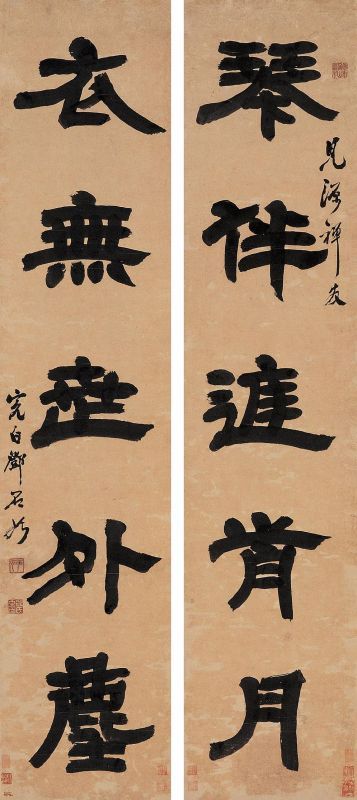 琴伴進月
見禪友
衣無世外塵
完白鄧石如